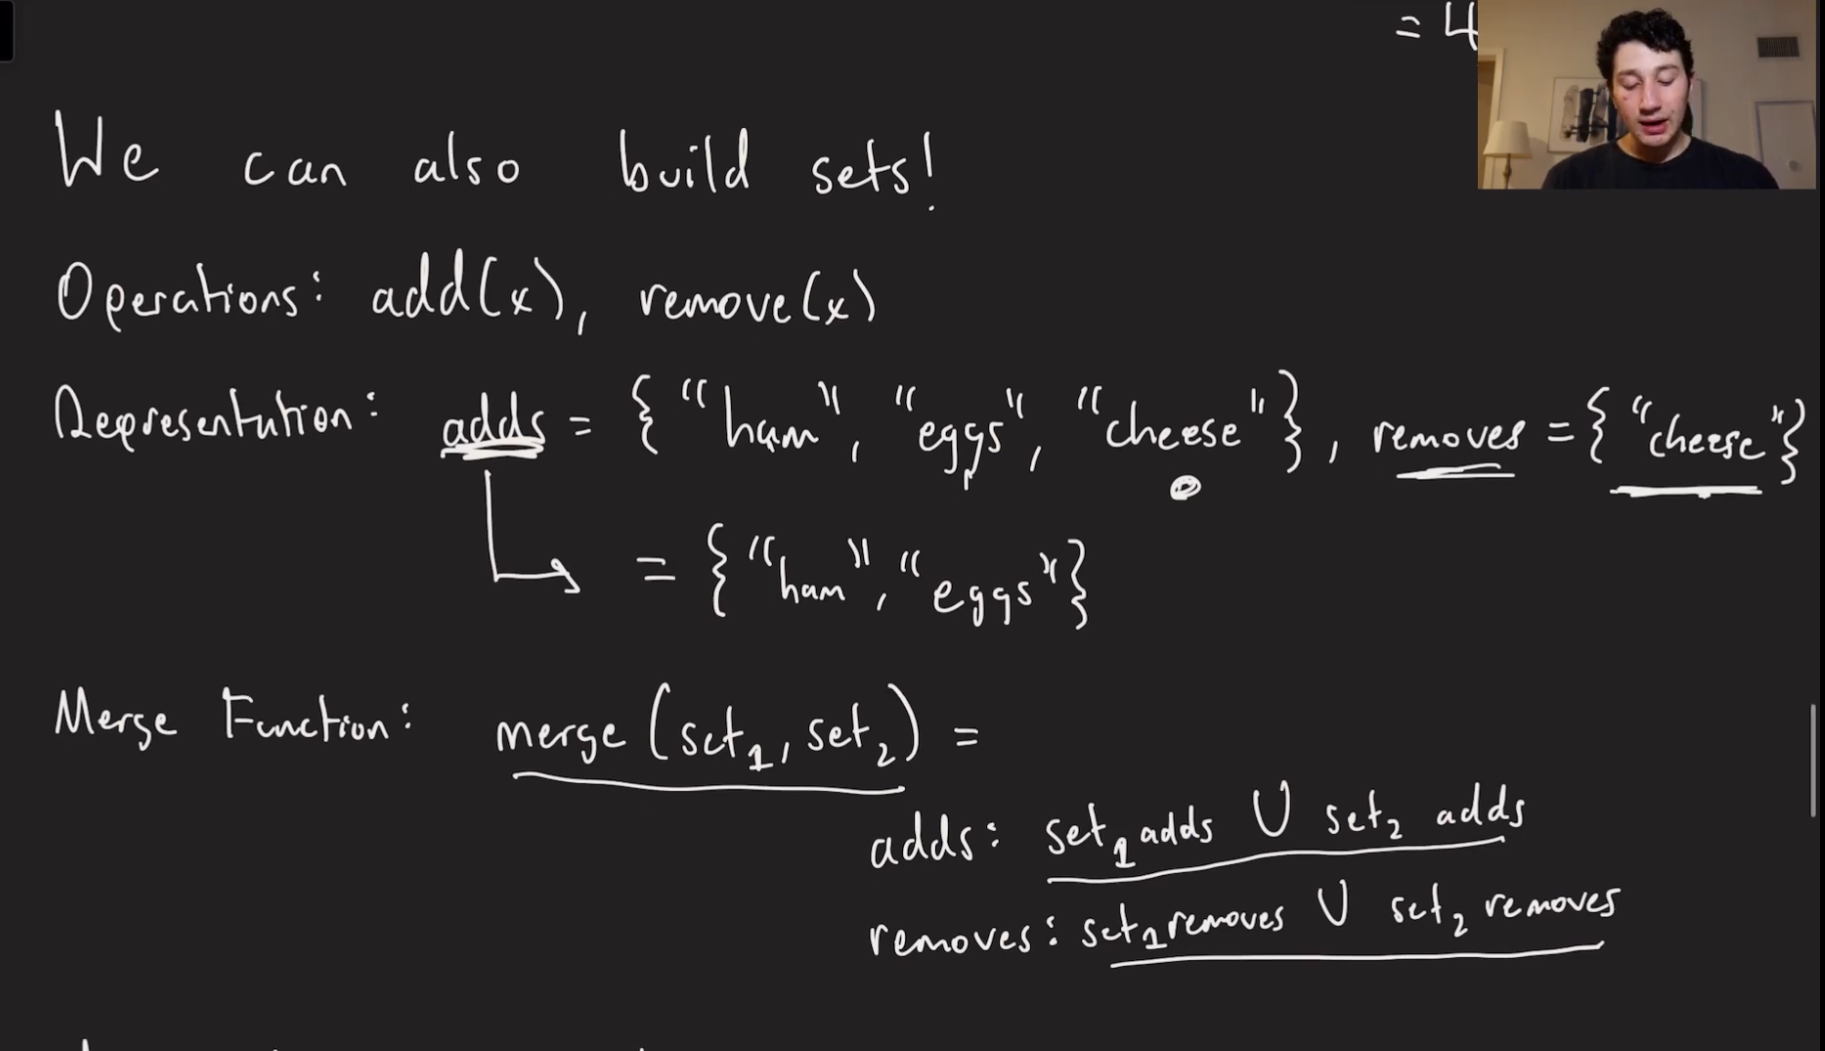 = 4
We can also build sets!
Operations: add(x), remove(x)
Representation: adds = {"ham", "eggs", "cheese"}, removes = {"cheese"}
= {"ham", "eggs"}
Merge Function: merge(set1, set2) =
adds: set1 adds ∪ set2 adds
removes: set1 removes ∪ set2 removes